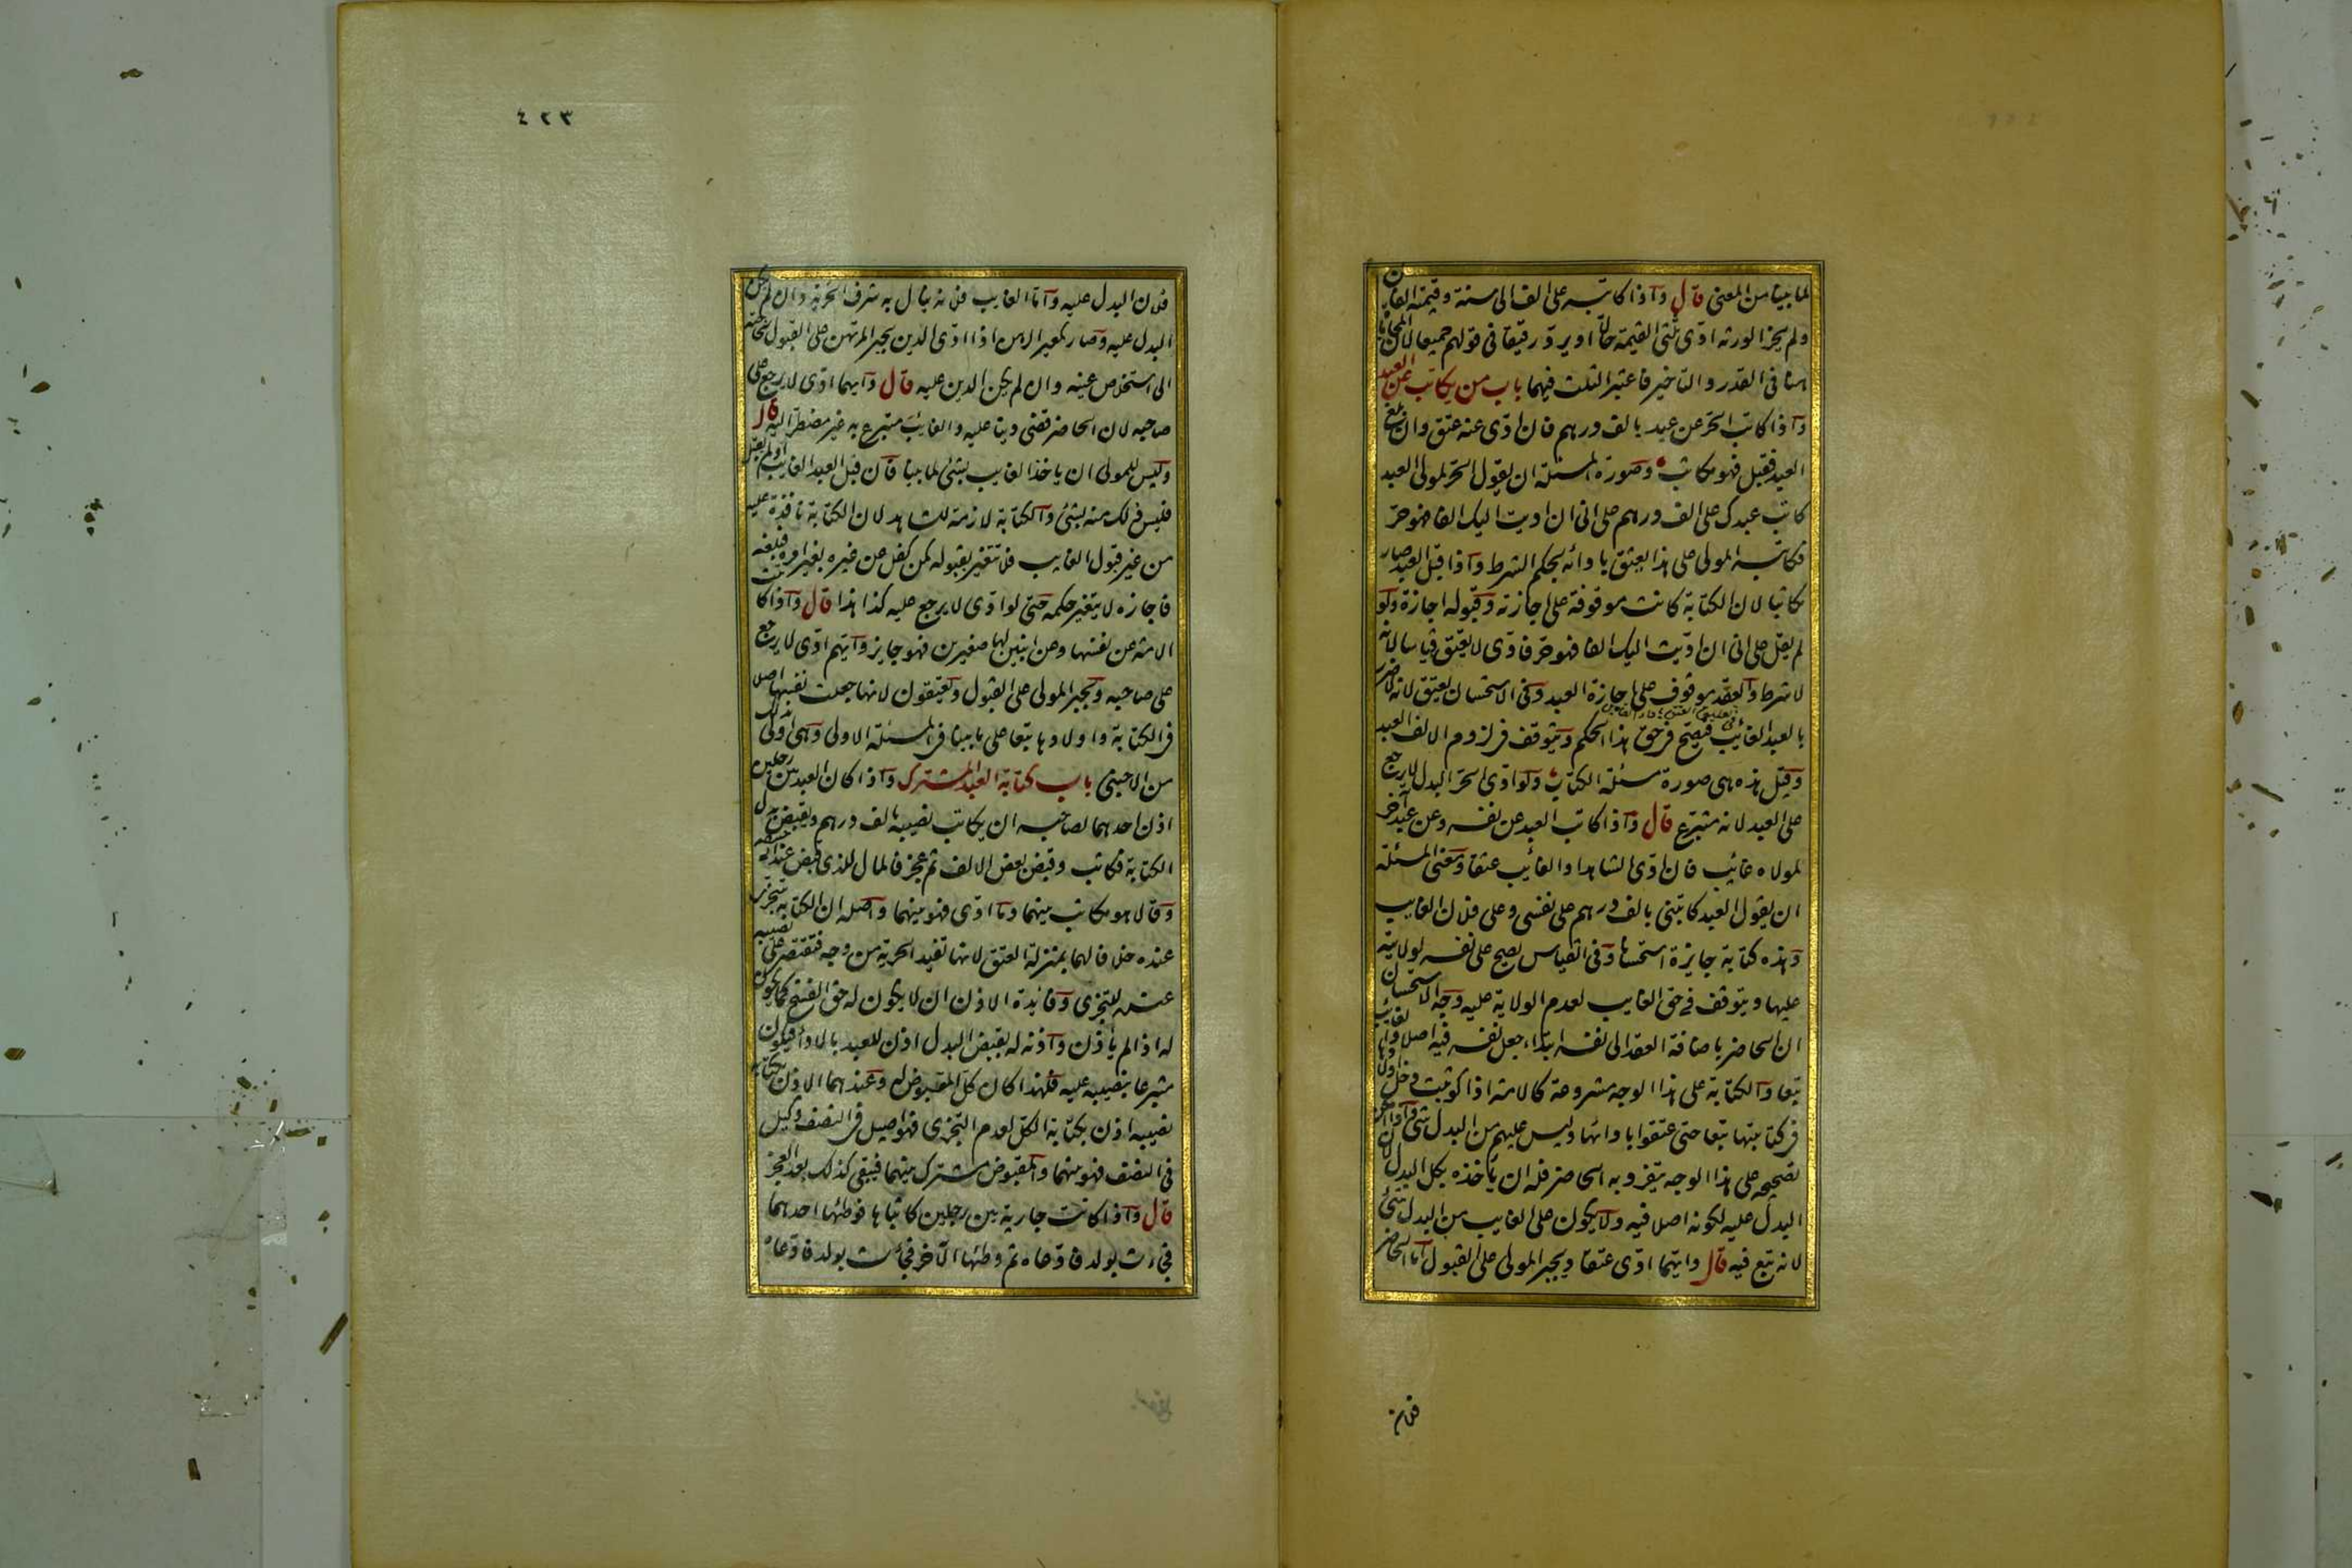 لما بينا من المعنى قال واذا كاتبه على الف الى سنة وقيمته الفان
ولم يجز الورثة ادى ثلثى القيمة حالا او يرد رقيقا فى قولهم جميعا لان المحاباة
هنا فى القدر والتاخير فاعتبر الثلث فيهما باب من يكاتب عن العبد
واذا كاتب الحر عن عبد بالف درهم فان ادى عنه عتق وان بلغ
العبد فقبل فهو مكاتب وصورة المسئلة ان يقول الحر لمولى العبد
كاتب عبدك على الف درهم على انى ان اديت اليك الفا فهو حر
فكاتبه المولى على هذا يعتق بادائه بحكم الشرط واذا قبل العبد صار
مكاتبا لان الكتابة كانت موقوفة على اجازته وقبوله اجازة ولو
لم يقل على انى ان اديت اليك الفا فهو حر فادى لا يعتق قياسا لانه
لا شرط والعقد موقوف على اجازة العبد وفى الاستحسان يعتق لانه لا ضرر
بالعبد الغائب فيصح فى حق هذا الحكم ويتوقف فى لزوم الالف العبد
وقيل هذه هى صورة مسئلة الكتاب ولو ادى الحر البدل لا يرجع
على العبد لانه متبرع قال واذا كاتب العبد عن نفسه وعن عبد آخر
لمولاه غائب فان ادى الشاهد او الغايب عتقا ومعنى المسئلة
ان يقول العبد كاتبنى بالف درهم على نفسى وعلى فلان الغايب
وهذه كتابة جايزة استحسانا وفى القياس يصح على نفسه لولايته
عليها ويتوقف فى حق الغايب لعدم الولاية عليه وجه الاستحسان
ان الحاضر باضافة العقد الى نفسه ابتداء جعل نفسه فيه اصلا والغايب
تبعا والكتابة على هذا الوجه مشروعة كالامة اذا كوتبت دخل اولادها
فى كتابتها تبعا حتى عتقوا بادائها وليس عليهم من البدل شئ واذا امكن
تصحيحه على هذا الوجه يتفرد به الحاضر فله ان ياخذه بكل البدل لان
البدل عليه لكونه اصلا فيه ولا يكون على الغايب من البدل شئ
لانه تبع فيه قال وايهما ادى عتقا ويجبر المولى على القبول اما الحاضر
فلان
٤٢٣
فلان البدل عليه واما الغايب فلانه ينال به شرف الحرية وان لم يكن
البدل عليه وصار كمعير الرهن اذا ادى الدين يجبر المرتهن على القبول لحاجته
الى استخلاص عينه وان لم يكن الدين عليه قال وايهما ادى لا يرجع على
صاحبه لان الحاضر قضى دينا عليه والغايب متبرع به غير مضطر اليه قال
وليس للمولى ان ياخذ الغايب بشئ لما بينا فان قبل العبد الغايب او لم يقبل
فليس ذلك منه بشئ والكتابة لازمة للشاهد لان الكتابة نافذة عليه
من غير قبول الغايب فلا تتغير بقبوله كمن كفل عن غيره بغير امره فبلغه
فاجازه لا يتغير حكمه حتى لو ادى لا يرجع عليه كذا هذا قال واذا كاتبت
الامة عن نفسها وعن ابنين لها صغيرين فهو جايز وايهم ادى لا يرجع
على صاحبه ويجبر المولى على القبول ويعتقون لانها جعلت نفسها اصلا
فى الكتابة واولادها تبعا على ما بينا فى المسئلة الاولى وهى اولى بذلك
من الاجنبى باب كتابة العبد المشترك واذا كان العبد بين رجلين
اذن احدهما لصاحبه ان يكاتب نصيبه بالف درهم ويقبض بدل
الكتابة فكاتب وقبض بعض الالف ثم عجز فالمال للذى قبض عند ابى حنيفة
وقالا هو مكاتب بينهما وما ادى فهو بينهما واصله ان الكتابة تتجزى
عنده خلافا لهما بمنزلة العتق لانها تفيد الحرية من وجه فتقتصر على نصيبه
عنده للتجزى وفائدة الاذن ان لا يكون له حق الفسخ كما يكون
له اذا لم ياذن واذنه له بقبض البدل اذن للعبد بالاداء فيكون
متبرعا بنصيبه عليه فلهذا كان كل المقبوض له وعندهما الاذن بكتابة
نصيبه اذن بكتابة الكل لعدم التجزى فهو اصيل فى النصف وكيل
فى النصف فهو بينهما والمقبوض مشترك بينهما فيبقى كذلك بعد العجز
قال واذا كانت جارية بين رجلين كاتباها فوطئها احدهما
فجاءت بولد فادعاه ثم وطئها الآخر فجاءت بولد فادعاه